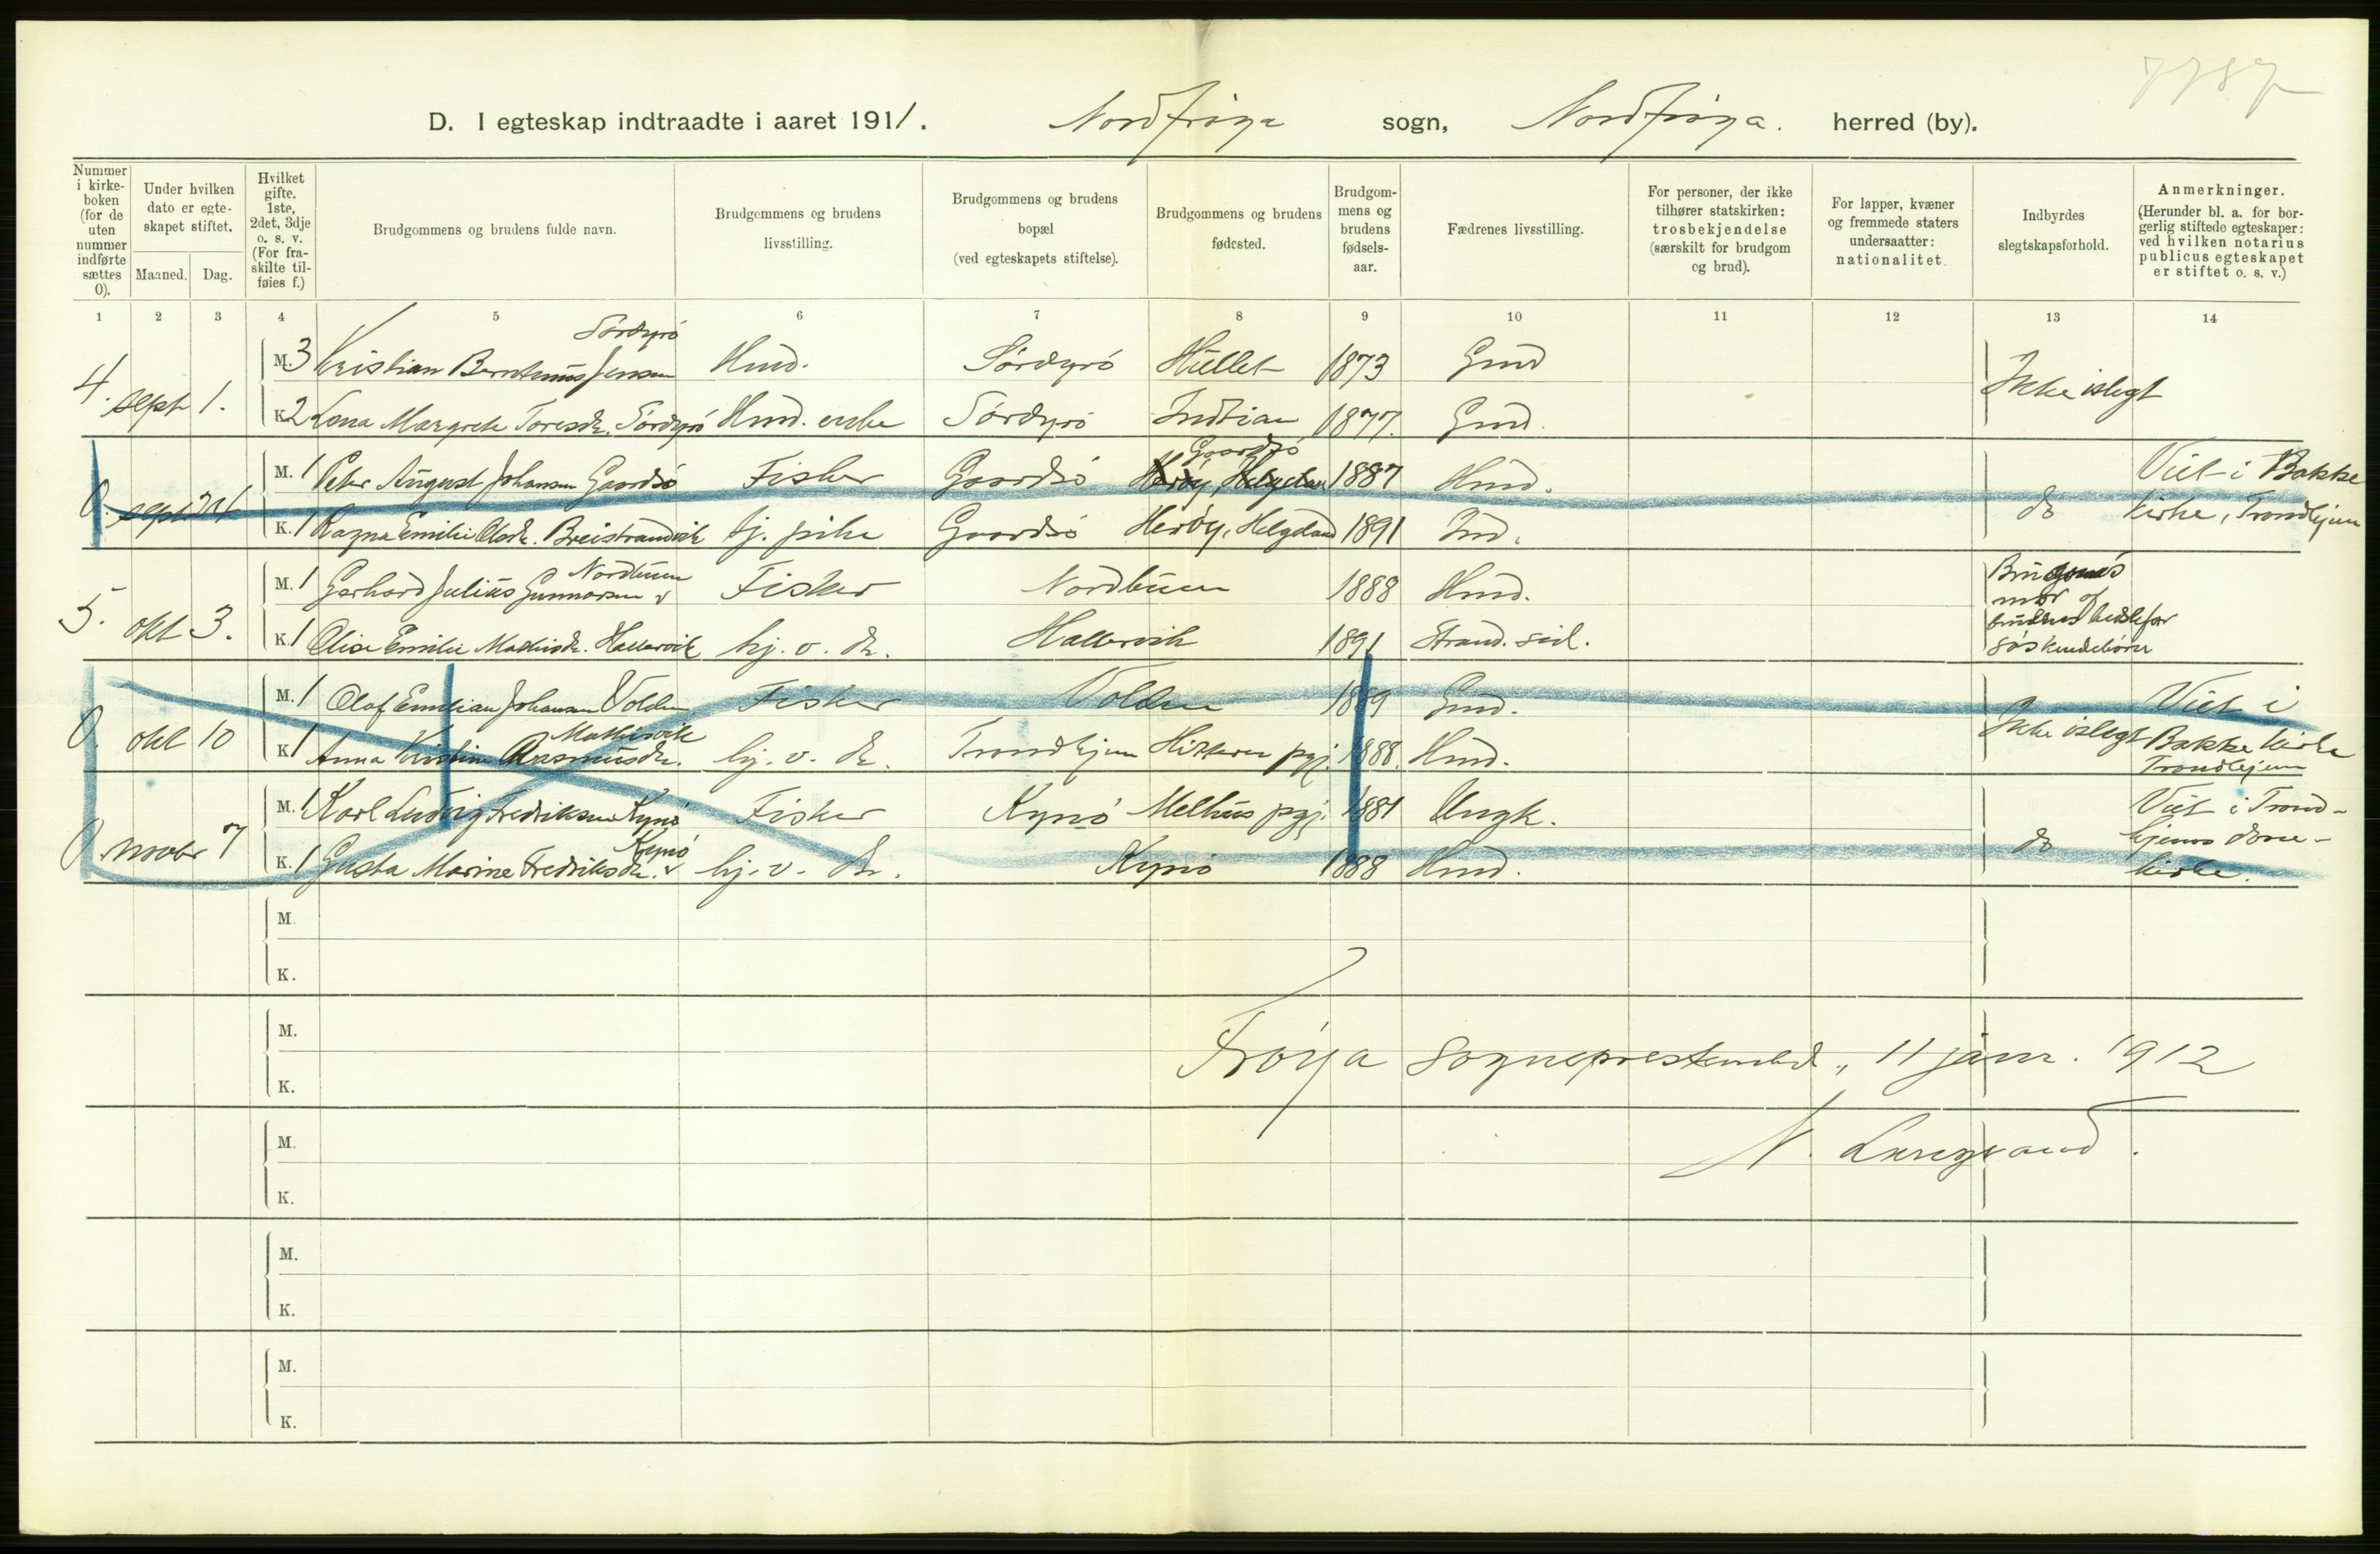 7787
D. I egteskap indtraadte i aaret 1911. Nordfrøya sogn, Nordfrøya. herred (by).
Nummer i kirke- boken (for de uten nummer indførte sættes 0).
Under hvilken dato er egte- skapet stiftet.
Maaned. Dag.
Hvilket gifte. 1ste, 2det, 3dje o. s. v. (For fra- skilte til- føies f.)
Brudgommens og brudens fulde navn.
Brudgommens og brudens livsstilling.
Brudgommens og brudens bopæl (ved egteskapets stiftelse).
Brudgommens og brudens fødested.
Brudgom- mens og brudens fødsels- aar.
Fædrenes livsstilling.
For personer, der ikke tilhører statskirken: trosbekjendelse (særskilt for brudgom og brud).
For lapper, kvæner og fremmede staters undersaatter: nationalitet
Indbyrdes slegtskapsforhold.
Anmerkninger. (Herunder bl. a. for bor- gerlig stiftede egteskaper: ved hvilken notarius publicus egteskapet er stiftet o. s. v.)
1 2 3 4 5 6 7 8 9 10 11 12 13 14
Sørdyrö
4. sept 1. M. 3 Kristian Jensen Hmd. Sørdyrö Hüllet 1873 Gmd Ikke i slegt
K. 2 Lona Margrete Toresdr. Sørdyrö Hmd. enke Sørdyrö 1877. Gmd.
Gaardsö
0. sept 24 M. 1 Peter August Johansen Gaardsö Fisker Gaardsö Herøy, Helgeland 1887 Hmd. do Viet i Bakke
K. 1 Ragna Emilie Olsdr. Breistrandvik tj. pike Gaardsö Herøy, Helgeland 1891 Ind. kirke, Trondhjem
Nordbuen
5. okt 3. M. 1 Gerhard Julius Gunnarsen v Fisker Nordbuen 1888 Hmd. Brudgoms
mor og
K. 1 Olise Emilie Mathisdr. Hallervik hj. v. dr. Hallervik 1891 Strand. sid. brudens bedstefar
søskendebørn
0. okt 10 M. 1 Olaf Emilian Johansen Volden Fisker Volden 1889 Gmd. Ikke i slegt Viet i
Mathisvik
K. 1 Anna Kristine Rasmusdr. hj. v. dr. Trondhjem Hitteren pgj. 1888. Hmd. Bakke kirke
Trondhjem
0. novbr 7 M. 1 Karl Ludvig Fredriksen Kynö Fisker Kynö Melhus pgj. 1881 Ungk. do Viet i Trond-
hjems dom-
Kynö
K. 1 Gusta Marine Fredriksdr. v hj. v. dr. Kynö 1888 Hmd. kirke.
M.
K.
M.
K.
Frøya sogneprestembed, 11 janr. 1912
M.
N.
K.
M.
K.
M.
K.